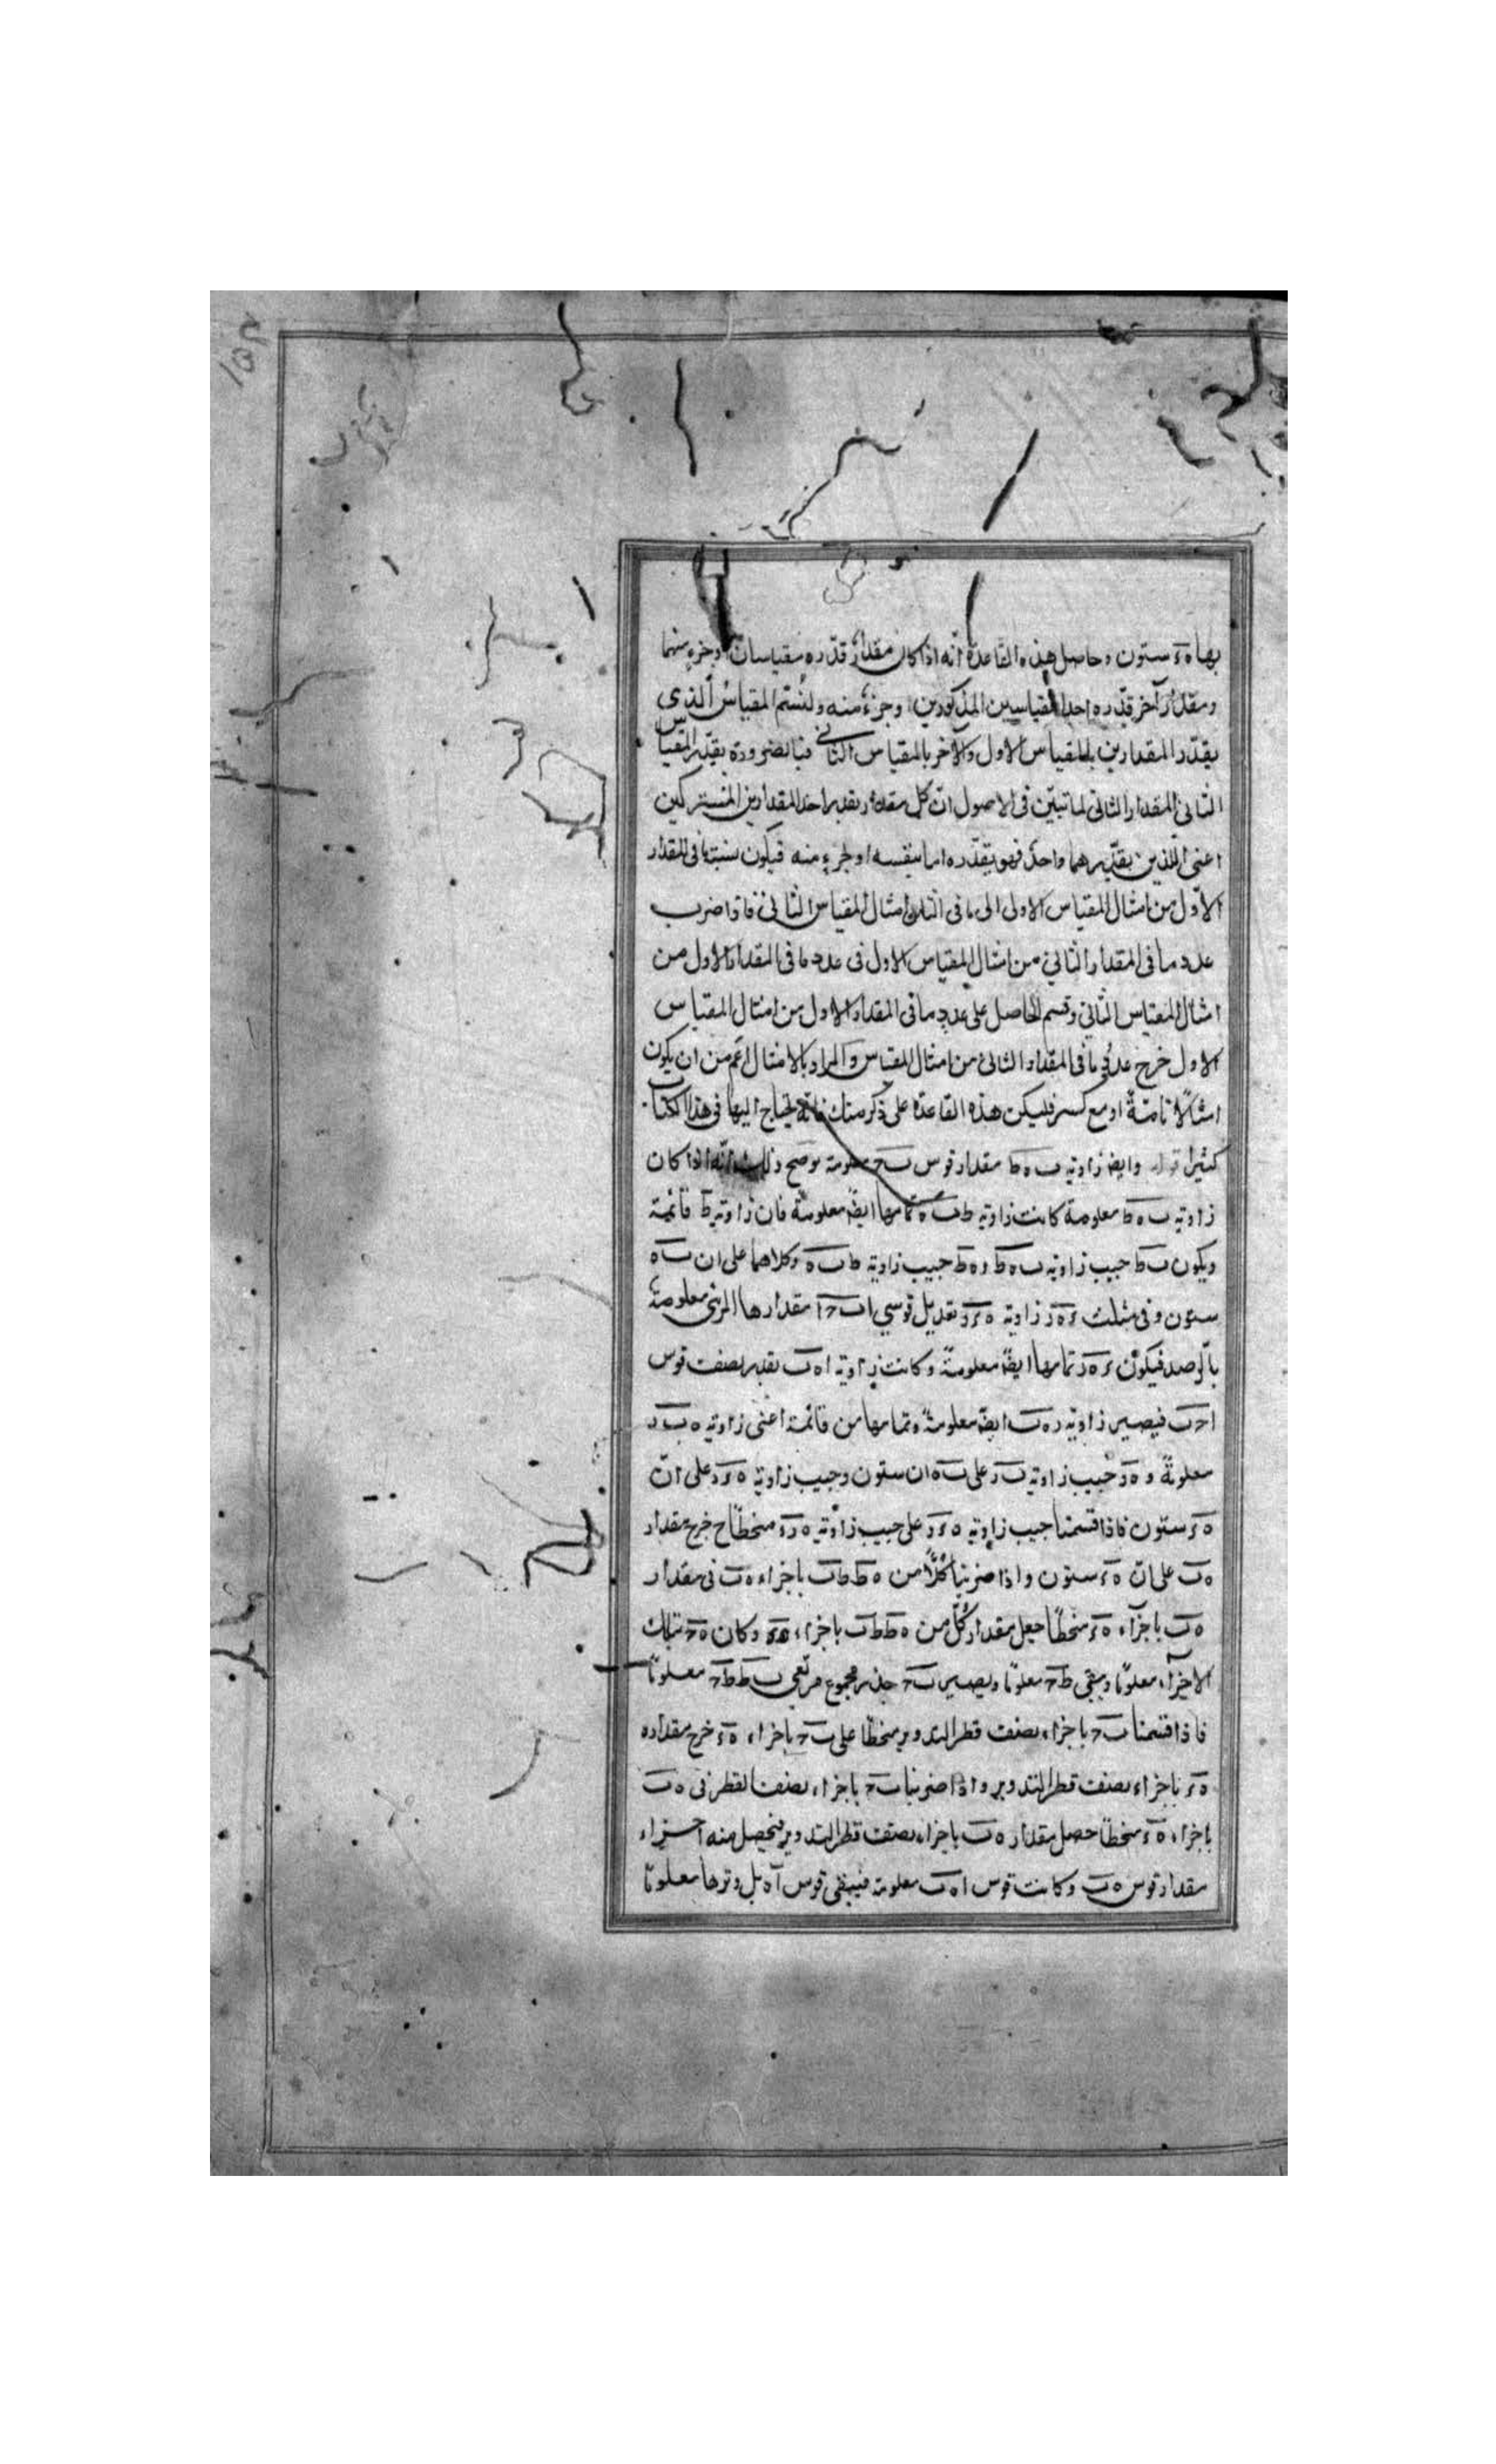 بها ه ء ستون وحاصل هذه القاعدة انّه اذا كان مقدار قدّره مقياسان او جزء منهما
ومقدار آخر قدّره احد المقياسين المذكورين او جزء منه ولنسمّ المقياس الّذى
يقدّر المقدارين بالمقياس الاول والآخر بالمقياس الثانى فبالضرورة يقدّر المقياس
الثانى المقدار الثانى لما تبيّن فى الاصول انّ كل مقدار يقدر احد المقدارين المشتركين
اعنى اللّذين يقدّرهما واحد فهو يقدّره اما بنفسه او لجزء منه فيكون نسبة ما فى المقدار
الاوّل من امثال المقياس الاول الى ما فى الثانى امثال المقياس الثانى فاذا ضرب
عدد ما فى المقدار الثانى من امثال المقياس الاول فى عدد ما فى المقدار الاول من
امثال المقياس الثانى وقسم الحاصل على عدد ما فى المقدار الاول من امثال المقياس
الاول خرج عدد ما فى المقدار الثانى من امثال المقياس والمراد بالامثال اعمّ من ان يكون
امثالًا تامّةً او مع كسر فليكن هذه القاعدة على ذكر منك فانّه يحتاج اليها فى هذا الكتاب
كثيرا وايضا زاوية ب ه ط مقدار قوس ب ح معلومة موضح ذلك انّه اذا كان
زاوية ب ه ط معلومة كانت زاوية ط ب ه تمامها ايضًا معلومة فان زاوية ط قائمة
ويكون ب ط جيب زاوية ب ه ط و ه ط جيب زاوية ط ب ه وكلاهما على ان ب ه
ستون وفى مثلث ء ه ر زاوية ه ء ر تعديل قوسي ا ب ح ا مقدارها المرئى معلومة
بالرصد فيكون ء ه ر تمامها ايضًا معلومةً وكانت زاوية ا ه ب بقدر نصف قوس
ا ح ب فيصير زاوية ر ه ب ايضا معلومةً وتمامها من قائمة اعنى زاوية ه ب ر
معلومةً و ه ر جيب زاوية ب ر على ب ه ان ستون وجيب زاوية ه ء ر على انّ
ه ء ستون فاذا قسمنا جيب زاوية ه ء ر على جيب زاوية ه ر ء منحطّا ح خرج مقدار
ه ب على انّ ه ء ستون واذا ضربنا كلًّا من ه ط ط ب باجزاء ه ب فى مقدار
ه ب باجزآء ه ء منحطًا جعل مقدار كلّ من ه ط ط ب باجزاء ه ء وكان ه ح بتلك
الاجزآء معلومًا ويبقى ط ح معلومًا ويصير ب ح جذر مجموع مربّعى ب ط ط ح معلومًا
فاذا قسمنا ب ح باجزاء نصف قطر التدوير منحطًا على ب ح باجزاء ه ء خرج مقداره
ه ء باجزاء نصف قطر التدوير واذا ضربنا ب ح باجزاء نصف القطر فى ه ب
باجزاء ه ء منحطا حصل مقدار ه ب باجزاء نصف قطر التدوير فيحصل منه اجزاء
مقدار قوس ه ب وكانت قوس ا ه ب معلومة فيبقى قوس آ ه بل وترها معلومًا